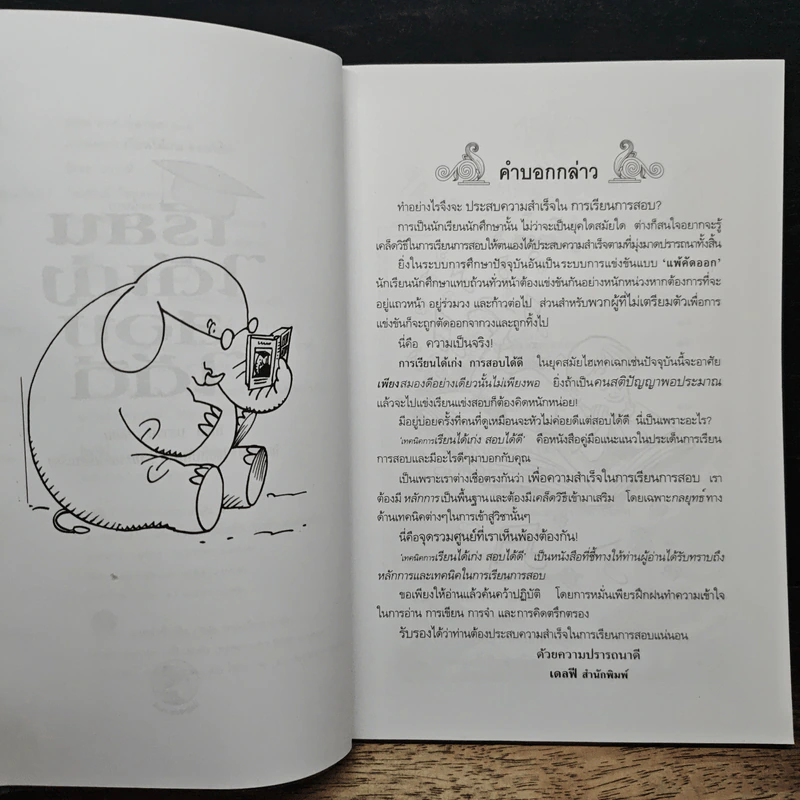 คำบอกกล่าว
ทำอย่างไรจึงจะ ประสบความสำเร็จใน การเรียนการสอบ?
การเป็นนักเรียนนักศึกษานั้น ไม่ว่าจะเป็นยุคใดสมัยใด ต่างก็สนใจอยากจะรู้
เคล็ดวิธีในการเรียนการสอบให้ตนเองได้ประสบความสำเร็จตามที่มุ่งมาดปรารถนาทั้งสิ้น
ยิ่งในระบบการศึกษาปัจจุบันอันเป็นระบบการแข่งขันแบบ 'แพ้คัดออก'
นักเรียนนักศึกษาแทบถ้วนทั่วหน้าต้องแข่งขันกันอย่างหนักหน่วงหากต้องการที่จะ
อยู่แถวหน้า อยู่ร่วมวง และก้าวต่อไป ส่วนสำหรับพวกผู้ที่ไม่เตรียมตัวเพื่อการ
แข่งขันก็จะถูกตัดออกจากวงและถูกทิ้งไป
นี่คือ ความเป็นจริง!
การเรียนได้เก่ง การสอบได้ดี ในยุคสมัยไฮเทคเฉกเช่นปัจจุบันนี้จะอาศัย
เพียงสมองดีอย่างเดียวนั้นไม่เพียงพอ ยิ่งถ้าเป็นคนสติปัญญาพอประมาณ
แล้วจะไปแข่งเรียนแข่งสอบก็ต้องคิดหนักหน่อย!
มีอยู่บ่อยครั้งที่คนที่ดูเหมือนจะหัวไม่ค่อยดีแต่สอบได้ดี นี่เป็นเพราะอะไร?
'เทคนิคการเรียนได้เก่ง สอบได้ดี' คือหนังสือคู่มือแนะแนวในประเด็นการเรียน
การสอบและมีอะไรดีๆมาบอกกับคุณ
เป็นเพราะเราต่างเชื่อตรงกันว่า เพื่อความสำเร็จในการเรียนการสอบ เรา
ต้องมี หลักการ เป็นพื้นฐานและต้องมีเคล็ดวิธีเข้ามาเสริม โดยเฉพาะกลยุทธ์ ทาง
ด้านเทคนิคต่างๆในการเข้าสู่วิชานั้นๆ
นี่คือจุดรวมศูนย์ที่เราเห็นพ้องต้องกัน!
'เทคนิคการเรียนได้เก่ง สอบได้ดี' เป็นหนังสือที่ชี้ทางให้ท่านผู้อ่านได้รับทราบถึง
หลักการและเทคนิคในการเรียนการสอบ
ขอเพียงให้อ่านแล้วค้นคว้าปฏิบัติ โดยการหมั่นเพียรฝึกฝนทำความเข้าใจ
ในการอ่าน การเขียน การจำ และการคิดตรึกตรอง
รับรองได้ว่าท่านต้องประสบความสำเร็จในการเรียนการสอบแน่นอน
ด้วยความปรารถนาดี
เดลฟี สำนักพิมพ์